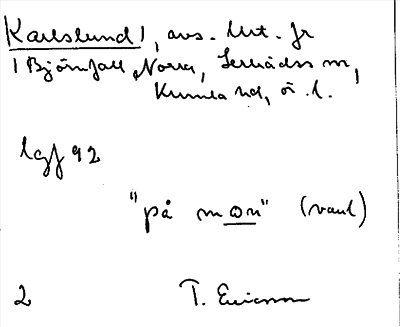 Karlslund 1, avs. Urt. fr
1 Björnfall, Norra, Lerbäcks sn,
Kumla hd, ö. l.
lgf 92
"på mon" (vanl)
2 T. Ericsson